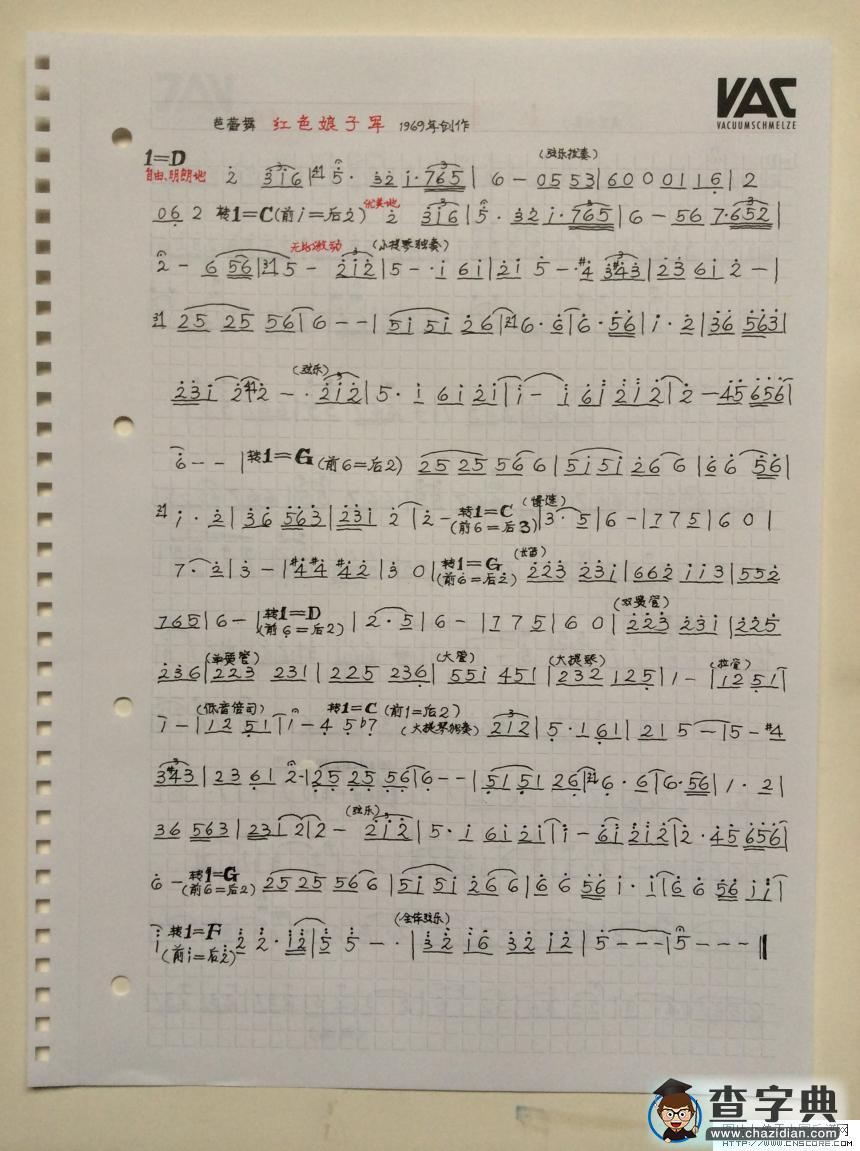 VAC
VACUUMSCHMELZE
芭蕾舞 红色娘子军 1969年创作
1=D
(弦乐按奏)
自由、明朗地 2̇ 3̇1̇6 | 5̇· 3̇2̇ 1̇·765 | 6 – 0553 | 6000116 | 2
062 转1=C(前1̇=后2̇) 优美地 2̇ 3̇1̇6 | 5̇· 3̇2̇ 1̇·765 | 6 – 56 7·652 |
无比激动 (小提琴独奏)
2̇ – 6 56 | 5 – 2̇1̇2̇ | 5 – ·1̇ 61̇ | 2̇1̇ 5 – ·#4 3#43 | 2̇3̇ 61̇ 2̇ – |
25 25 56 | 6 – – | 51̇ 51̇ 26 | 6· 6 | 6·56 | 1̇·2̇ | 3̇6 563̇ |
(弦乐)
2̇3̇1̇ 2̇ 2̇ – · 2̇1̇2̇ | 5· 1̇ 61̇ 2̇1̇ | 1̇ – 1̇ 61̇ 2̇1̇2̇ | 2̇ – 45 656 |
6 – – | 转1=G (前6=后2) 25 25 566 | 51̇51̇ 266 | 66 56 |
1̇·2̇ | 3̇6 563̇ | 2̇3̇1̇ 2̇ | 2̇ – 转1=C (前6=后3) (慢速) 3·5 | 6 – | 775 | 60 |
7·2̇ | 3̇ – | #4#4 #42 | 3̇0 | 转1=G (前6=后2̇) 2̇2̇3̇ 2̇3̇1̇ | 662̇ 1̇1̇3 | 552̇
765 | 6 – | 转1=D (前6=后2) | 2·5 | 6 – | 175 | 60 | (双簧管) 2̇2̇3̇ 2̇3̇1̇ | 2̇2̇5
2̇36 | (单簧管) 223 231 | 225 236 | (大管) 551̇ 451 | (大提琴) 232 125 | 1 – | 1251 |
1̇ – | (低音倍司) 1251 | 1 – 4 5 b7 转1=C (前1=后2) (大提琴独奏) 212 | 5·161 | 21 5 – | 5 – #4
3#43 | 23 61 2· | 25 25 56 | 6 – – | 51 51 26 | 6· 6 | 6·56 | 1·2 |
(弦乐)
36 563 | 231 2 | 2 – 2̇1̇2̇ | 5·1̇ 61̇ 2̇1̇ | 1̇ – 61̇ 2̇1̇2̇ | 2̇·45 656 |
6 – 转1=G (前6=后2) 25 25 566 | 51̇ 51̇ 266 | 66 56 1̇· 1̇ | 66 56 1̇1̇ |
1̇ 转1=F (前1̇=后2̇) 2̇ 2̇·1̇2̇ | 5 5 – · | (全体弦乐) 3̇2̇ 1̇6 3̇2̇ 1̇2̇ | 5̇ – – – | 5̇ – – – ‖
查字典
www.chazidian.com
HTTP://WWW.CNSCORE.COM